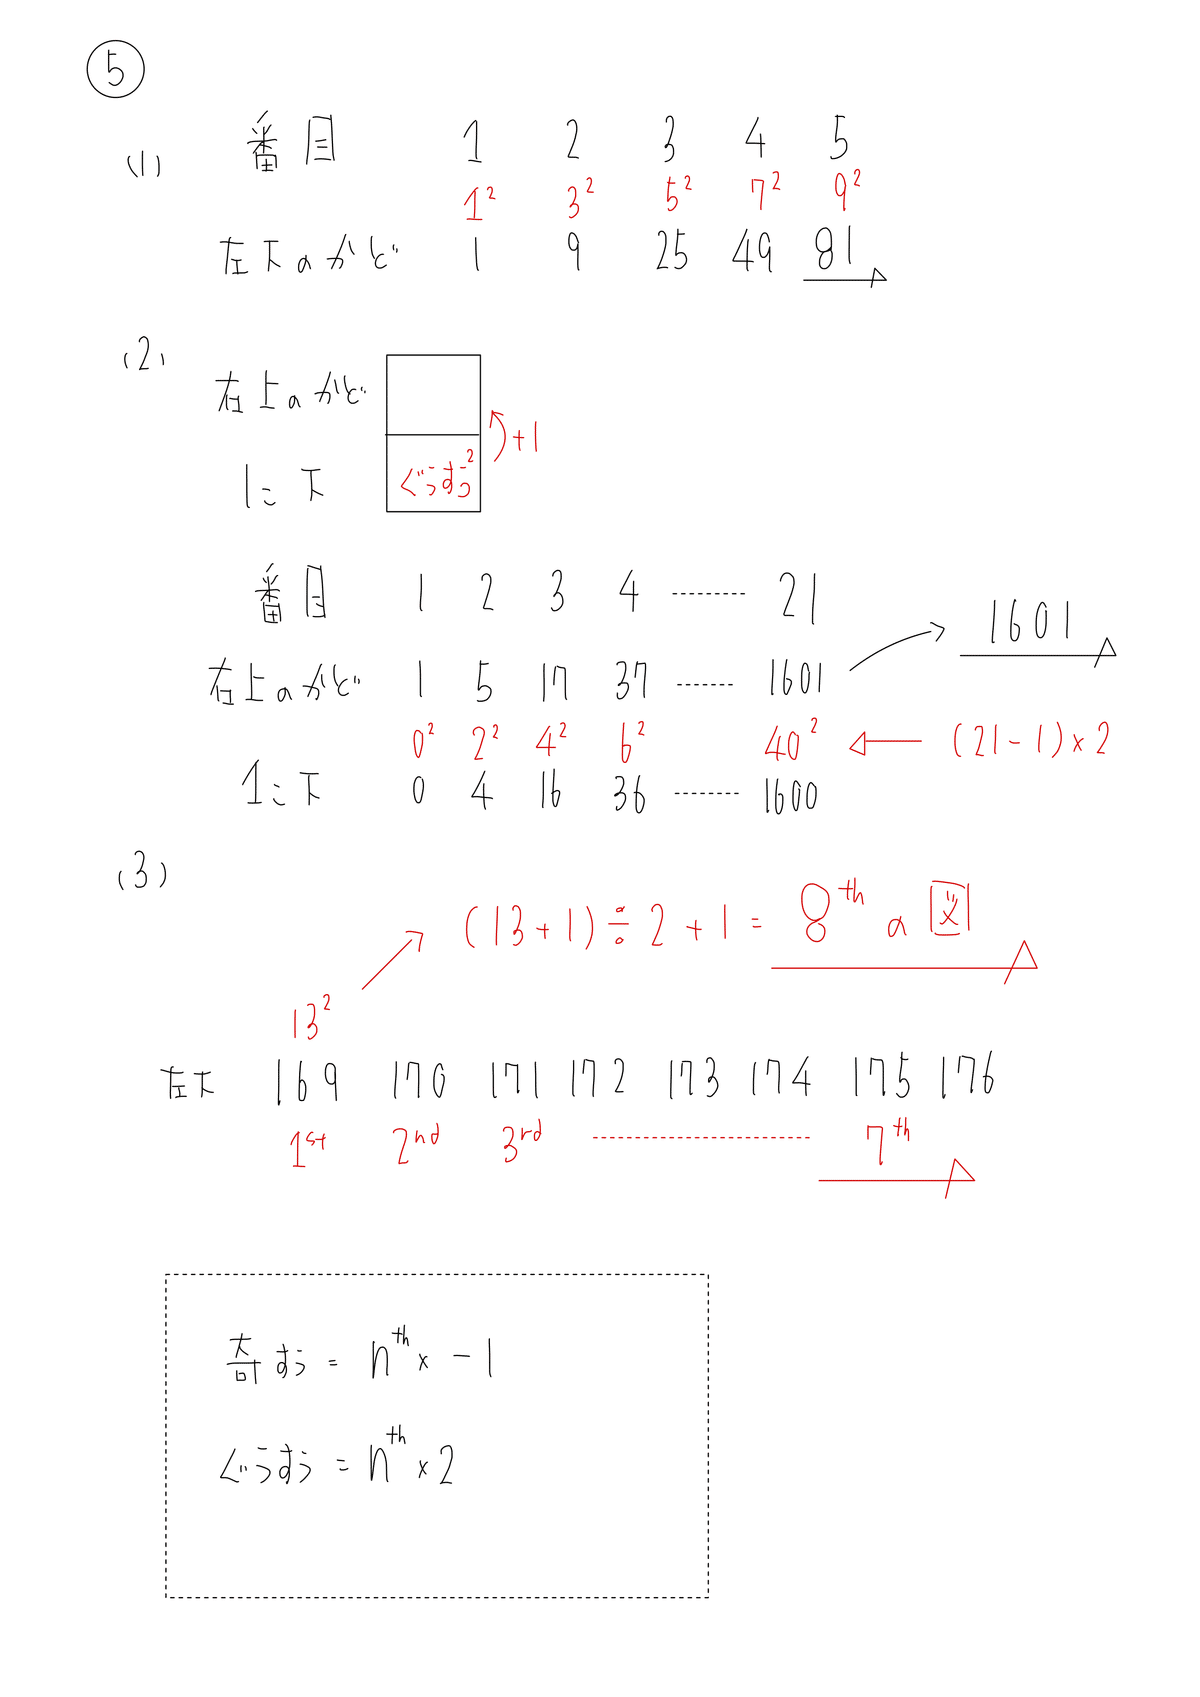 ⑤
(1) 番目 1 2 3 4 5
1² 3² 5² 7² 9²
左下のかど 1 9 25 49 81
(2)
右上のかど
+1
1こ下 ぐうすう²
番目 1 2 3 4 -------- 21
右上のかど 1 5 17 37 ------ 1601 → 1601
0² 2² 4² 6² 40² ← (21-1)×2
1こ下 0 4 16 36 ------- 1600
(3)
(13+1)÷2+1= 8th の図
13²
左下 169 170 171 172 173 174 175 176
1st 2nd 3rd -------- 7th
奇すう = nth × -1
ぐうすう = nth × 2